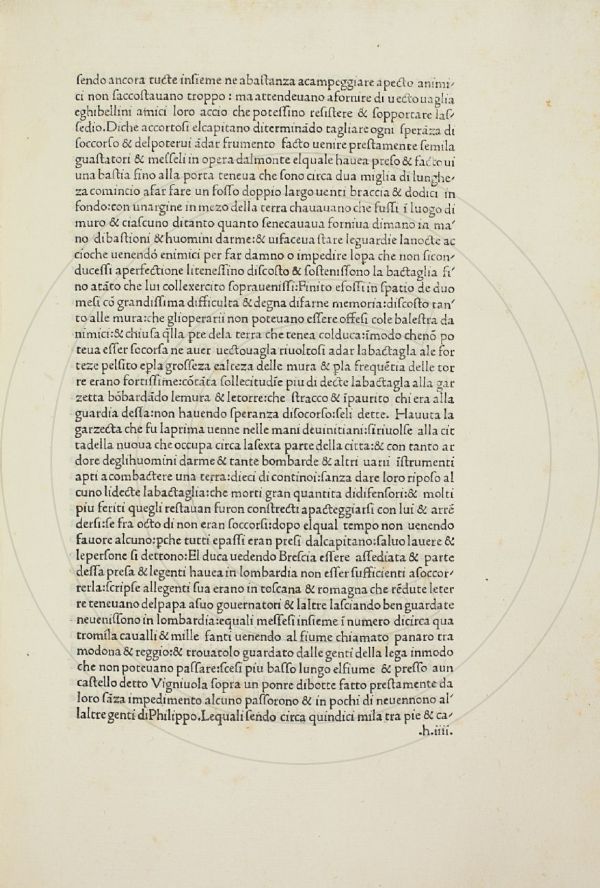 sendo ancora tucte insieme ne abastanza acampeggiare apecto animi-
ci non saccostauano troppo : ma attendeuano afornire di uectouaglia
eghibellini amici loro accio che potessino resistere & sopportare las-
sedio. Diche accortosi elcapitano diterminādo tagliare ogni sperāza di
soccorso & delpoterui ādar frumento facto uenire prestamente semila
guastatori & messeli in opera dalmonte elquale hauea preso & facto ui
una bastia sino alla porta teneua che sono circa dua miglia di lunghe-
za comincio afar fare un fosso doppio largo uenti braccia & dodici in
fondo: con unargine in mezo della terra chauauano che fussi ī luogo di
muro & ciascuno ditanto quanto senecauaua forniua dimano in ma-
no dibastioni & huomini darme: & uifaceua stare leguardie lanocte ac
cioche uenendo enimici per far damno o impedire lopa che non sicon-
ducessi aperfectione litenessino discosto & sostenissono la bactaglia fi-
no atāto che lui collexercito soprauenissi: Finito efossi in spatio de duo
mesi cō grandissima difficulta & degna difarne memoria: discosto tan-
to alle mura: che glioperarii non poteuano essere offesi cole balestra da
nimici: & chiusa q̄lla pte dela terra che tenea colduca: īmodo chenō po
teua esser socorsa ne auer uectouagla riuoltosi adar labactagla ale for
teze pelsito epla grosseza ealteza delle mura & pla frequētia delle tor
re erano fortissime: cōtāta sollecitudīe piu di decte labactagla alla gar
zetta bōbardādo lemura & letorre: che stracco & īpaurito chi era alla
guardia dessa: non hauendo speranza disocorso: seli dette. Hauuta la
garzecta che fu laprima uenne nelle mani deuinitiani: siriuolse alla cit
tadella nuoua che occupa circa lasexta parte della citta: & con tanto ar
dore deglihuomini darme & tante bombarde & altri uarii īstrumenti
apti acombactere una terra: dieci di continoi: sanza dare loro riposo al
cuno lidecte labactaglia: che morti gran quantita didifensori: & molti
piu feriti quegli restauan furon constrecti apacteggiarsi con lui & arrē
dersi: se fra octo di non eran soccorsi: dopo elqual tempo non uenendo
fauore alcuno: pche tutti epassi eran presi dalcapitano: saluo lauere &
lepersone si dettono: El duca uedendo Brescia essere assediata & parte
dessa presa & legenti hauea in lombardia non esser sufficienti asoccor-
rerla: scripse allegenti sua erano in toscana & romagna che rēdute leter
re teneuano delpapa asuo gouernatori & laltre lasciando ben guardate
neuenissono in lombardia: equali messesi insieme ī numero dicirca qua
tromila caualli & mille fanti uenendo al fiume chiamato panaro tra
modona & reggio: & trouatolo guardato dalle genti della lega inmodo
che non poteuano passare: scesi piu basso lungo elfiume & presso aun
castello detto Vigniuola sopra un ponre dibotte fatto prestamente da
loro sāza impedimento alcuno passorono & in pochi di neuennono al-
laltre genti diPhilippo. Lequali sendo circa quindici mila tra pie & ca-
.h.iiii.